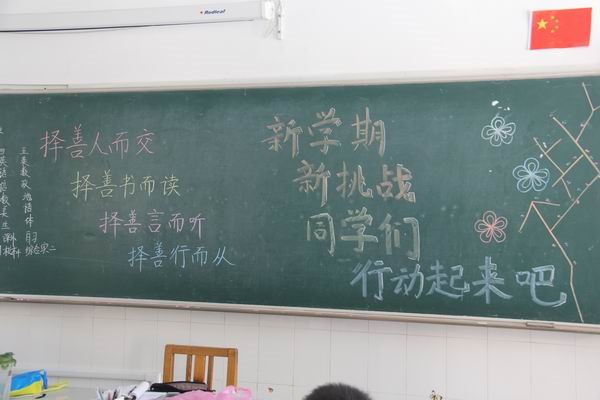 Redleaf
择善人而交
择善书而读
择善言而听
择善行而从
新学期
新挑战
同学们
行动起来吧